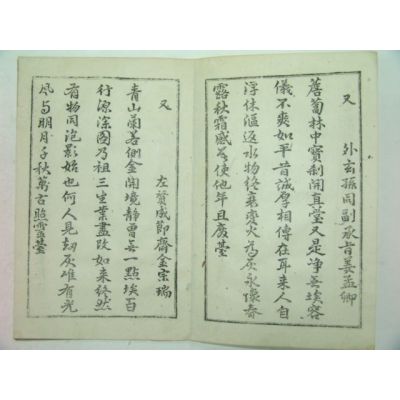 又 外玄孫同副承旨姜孟卿
薝蔔林中寶刹開真堂又是淨無埃容
儀不爽如平昔誠厚相傳在耳來人自
浮休漚返水物終變火為灰永懷春
露秋霜感使他年且廢臺
又 左贊成節齋金宗瑞
青山蘭若側金開境靜曾無一點埃百
行源深國乃祖三生業盡改如來終然
有物同泡影始也何人見劫灰唯有光
風与明月千秋萬古照靈臺